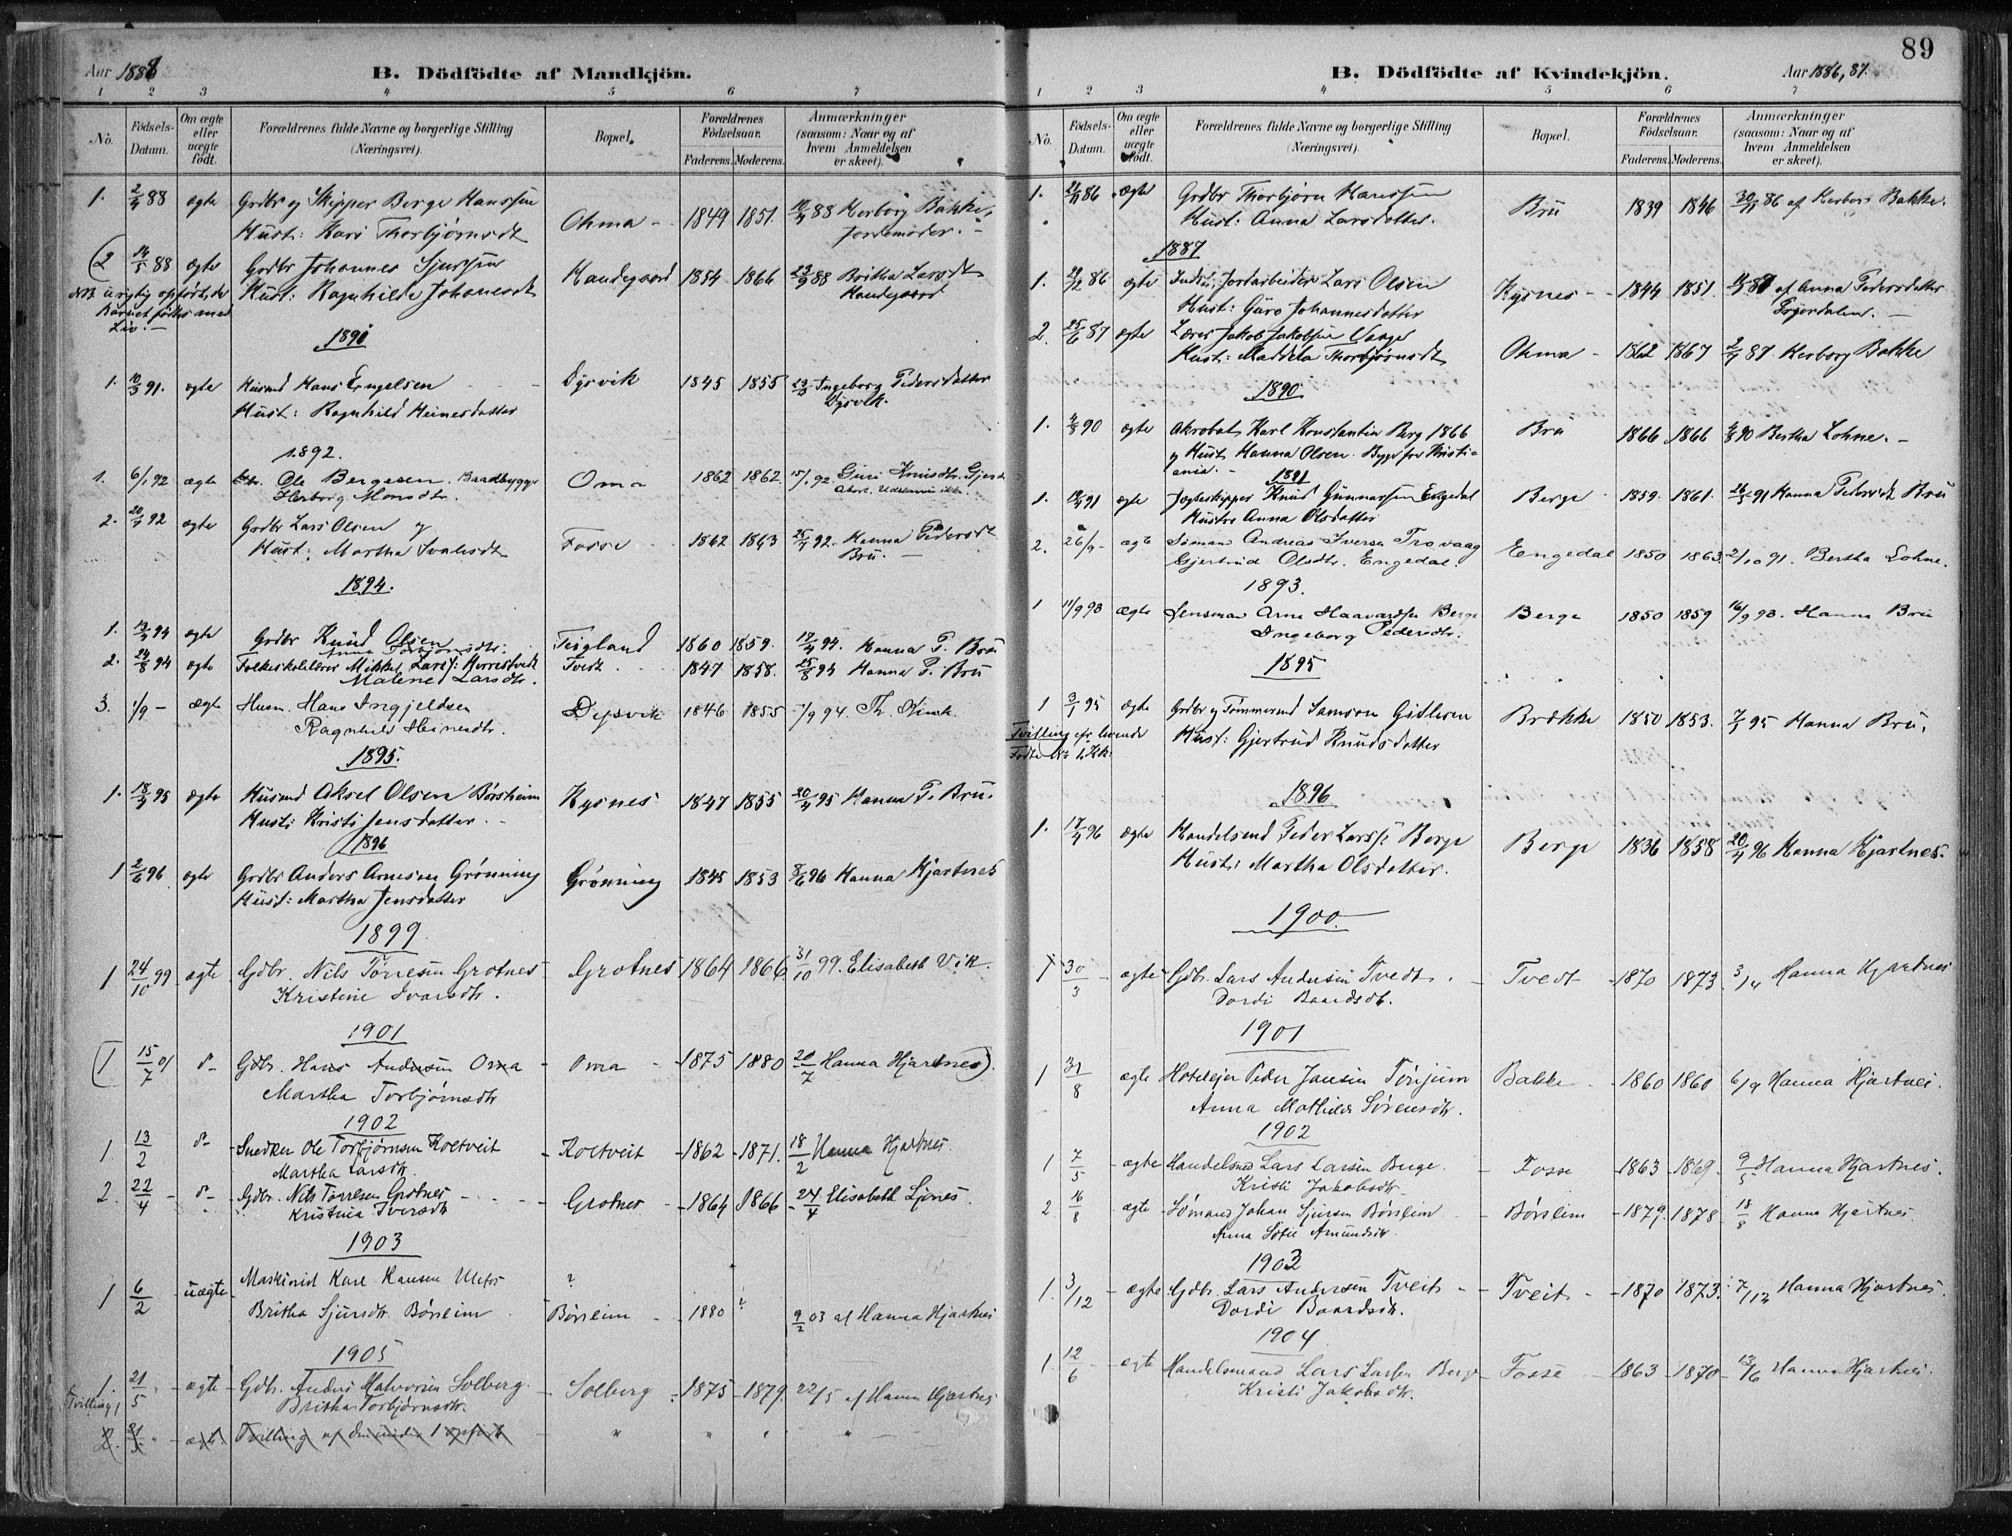 Aar 1888
B. Dödfödte af Mandkjön.
1 2 3 4 5 6 7
No. Födsels-Datum. Om ægte eller uægte födt. Forældrenes fulde Navne og borgerlige Stilling (Næringsvei). Bopæl. Forældrenes Födselsaar. Faderens. Moderens. Anmærkninger (saasom: Naar og af hvem Anmeldelsen er skeet).
1. 2/4 88 ægte Grdbr og Skipper Berge Hanssen Ohma 1849 1851 88 Herborg Bakke,
Hust: Kari Thorbjørnsdt Jordemoder.
2 14/5 88 ægte Grdbr Johannes Sjursen Handegaard 1854 1866 23/9 88 Britha Larsdt
NB. urigtig opført, da Hust: Ragnhilde Johannesdt Handegaard
Barnet fødtes med
Liv.
1891
1. 10/3 91. ægte Husmd Hans Engelsen Dysvik 1845 1855 23/3 Ingeborg Pedersdatter
Hust: Ragnhild Heinesdatter Dysvik.
1892.
1. 6/1 92 ægte Ole Bergesen Baadbygger Oma 1862 1862 15/1 92 Guri Knutsdtr. Gjerde
Herborg Monsdtr.
2. 20/7 92 ægte Grdbr Lars Olsen og Fosse 1862 1863 25/7 92. Hanna Pedersdt
Hust: Martha Ivarsdt Bru.
1894.
1. 13/4 94 ægte Grdbr Knud Olsen Teigland 1860 1859. 17/4 94. Hanna P. Bru
2. 24/8 94 ægte Folkeskolelærer Mikkel Larss: Herrestvedt Tvedt 1847 1858. 25/8 94 Hanna P. Bru
Malene Larsdtr.
3. 1/9 - ægte Husm. Hans Ingjeldsen Dysvik 1846 1855 1/9 94. Th.
Ragnhild Heinesdtr.
1895.
1. 18/4 95 ægte Husmd Aksel Olsen Børsheim Kysnes 1847 1855 20/4 95 Hanna P. Bru.
Hust: Kristi Jensdatter.
1896
1 2/6 96 ægte Grdbr Anders Arnesen Grønning Grønning 1845 1853 8/6 96 Hanna Hjartnes
Hust: Martha Jensdatter
1899
1 24/10 99 ægte Gdbr. Nils Tørresen Grotnes Grotnes 1864 1866 31/10 99. Elisabeth Vik.
Kristine Ivarsdtr.
1901
1 15/7 01 do Gdbr. Hans Andersen Oma Oma 1875 1880 20/7 Hanna Hjartnes).
Martha Torbjørnsdtr
1902
1. 13/2 do Snedker Ole Torbjørnsen Koltveit Koltveit 1862 1871. 18/2 Hanna Hjartnes.
Martha Larsdtr.
2. 22/4 do Gdbr. Nils Tørresen Grotnes Grotnes 1864 1866 24/4 Elisabeth Ljones.
Kristina Iversdtr
1903
1 6/2 uægte Maskinist Karl Hansen Ulefos ?
Britha Sjursdtr. Børsheim Børsheim 1880 ? 9/2 03 af Hanna Hjartnes
1905
1. 21/5 ægte Gdbr. Anders Halvorsen Solberg. Solberg 1875 1879. 22/5 af Hanna Hjartnes
Tvilling Britha Torbjørnsdtr.
2. 21/5 ægte Tvilling af den under 1 opført " " " " "
89
B. Dödfödte af Kvindekjön.
Aar 1886, 87.
1 2 3 4 5 6 7
No. Födsels-Datum. Om ægte eller uægte födt. Forældrenes fulde Navne og borgerlige Stilling (Næringsvei). Bopæl. Forældrenes Födselsaar. Faderens. Moderens. Anmærkninger (saasom: Naar og af hvem Anmeldelsen er skeet).
1. 86 ægte Grdbr Thorbjørn Hanssen Bru 1839 1846 86 af Herborg Bakke.
Hust: Anna Larsdatter.
1887
1. 86 ægte Jordarbeider Lars Olsen Kysnes 1844 1851. af Anna Pedersdatter
Hust: Guro Johannesdatter
2. 25/6 87 ægte Lærer Jakob Jakobsen Vaage Ohma 1862 1867 2/7 87. Herborg Bakke
Hust: Maddela Thorbjørnsdt
1890
1. 4/3 90 ægte Akrobat Karl Konstantin Berg 1866 Bru 1866 1866 4/3 90 Bertha Lohne.
og Hust Hanna Olsen. Bygd fra Kristi-
ania.
1891
1. 91 ægte Jagteskipper Knud Gunnarssen Engedal Berge 1859. 1861. 91 Hanna Pedersdt Bru
Hustru Anna Olsdatter
2. 26/9 - ægte Sømand Andreas Iversen Trovaag Engedal 1850 1863 2/10 91. Bertha Lohne.
Gjertrud Olsdtr. Engedal.
1893.
1 11/9 93 ægte Lensmand Arne Haavardsen Berge Berge 1850 1859 16/9 93. Hanna Bru
Ingeborg Pedersdtr.
1895
1 3/1 95 ægte Grdbr og Tømmermd Samson Gidlesen Brække 1850 1853. 7/1 95 Hanna Bru.
Tvilling cfr levende Hust: Gjertrud Knudsdatter
Fødte No 1. Kk.
1896
1. 17/4 96 ægte Handelsmd Peder Larss: Berge Berge 1836 1858 20/4 96 Hanna Hjartnes.
Hust: Martha Olsdatter.
1900
1 30/3 ægte Gdbr. Lars Andersen Tvedt. Tvedt 1870 1873. 3/4 Hanna Hjartnes
Dordi Baardsdtr.
1901
1 31/8 ægte Hoteleier Peder Jansen Tønjum Bakke 1860 1860 6/9 Hanna Hjartnes.
Anna Mathilde Sørensdtr.
1902
1 7/5 ægte Handelsmd Lars Larsen Berge. Fosse 1863 1869. 9/5 Hanna Hjartnes.
Kristi Jakobsdtr.
2 16/8 ægte Sømand Johan Sjursen Børsheim Børsheim 1879. 1878 18/8 Hanna Hjartnes.
Anna Sofie Amundsdtr.
1903
1. 3/12 ægte Gdbr. Lars Andersen Tveit Tveit 1870 1873. 7/12 Hanna Hjartnes.
Dordi Baardsdtr.
1904
1. 12/6 ægte Handelsmand Lars Larsen Berge Fosse 1863 1870 13/6 Hanna Hjartnes.
Kristi Jakobsdtr.